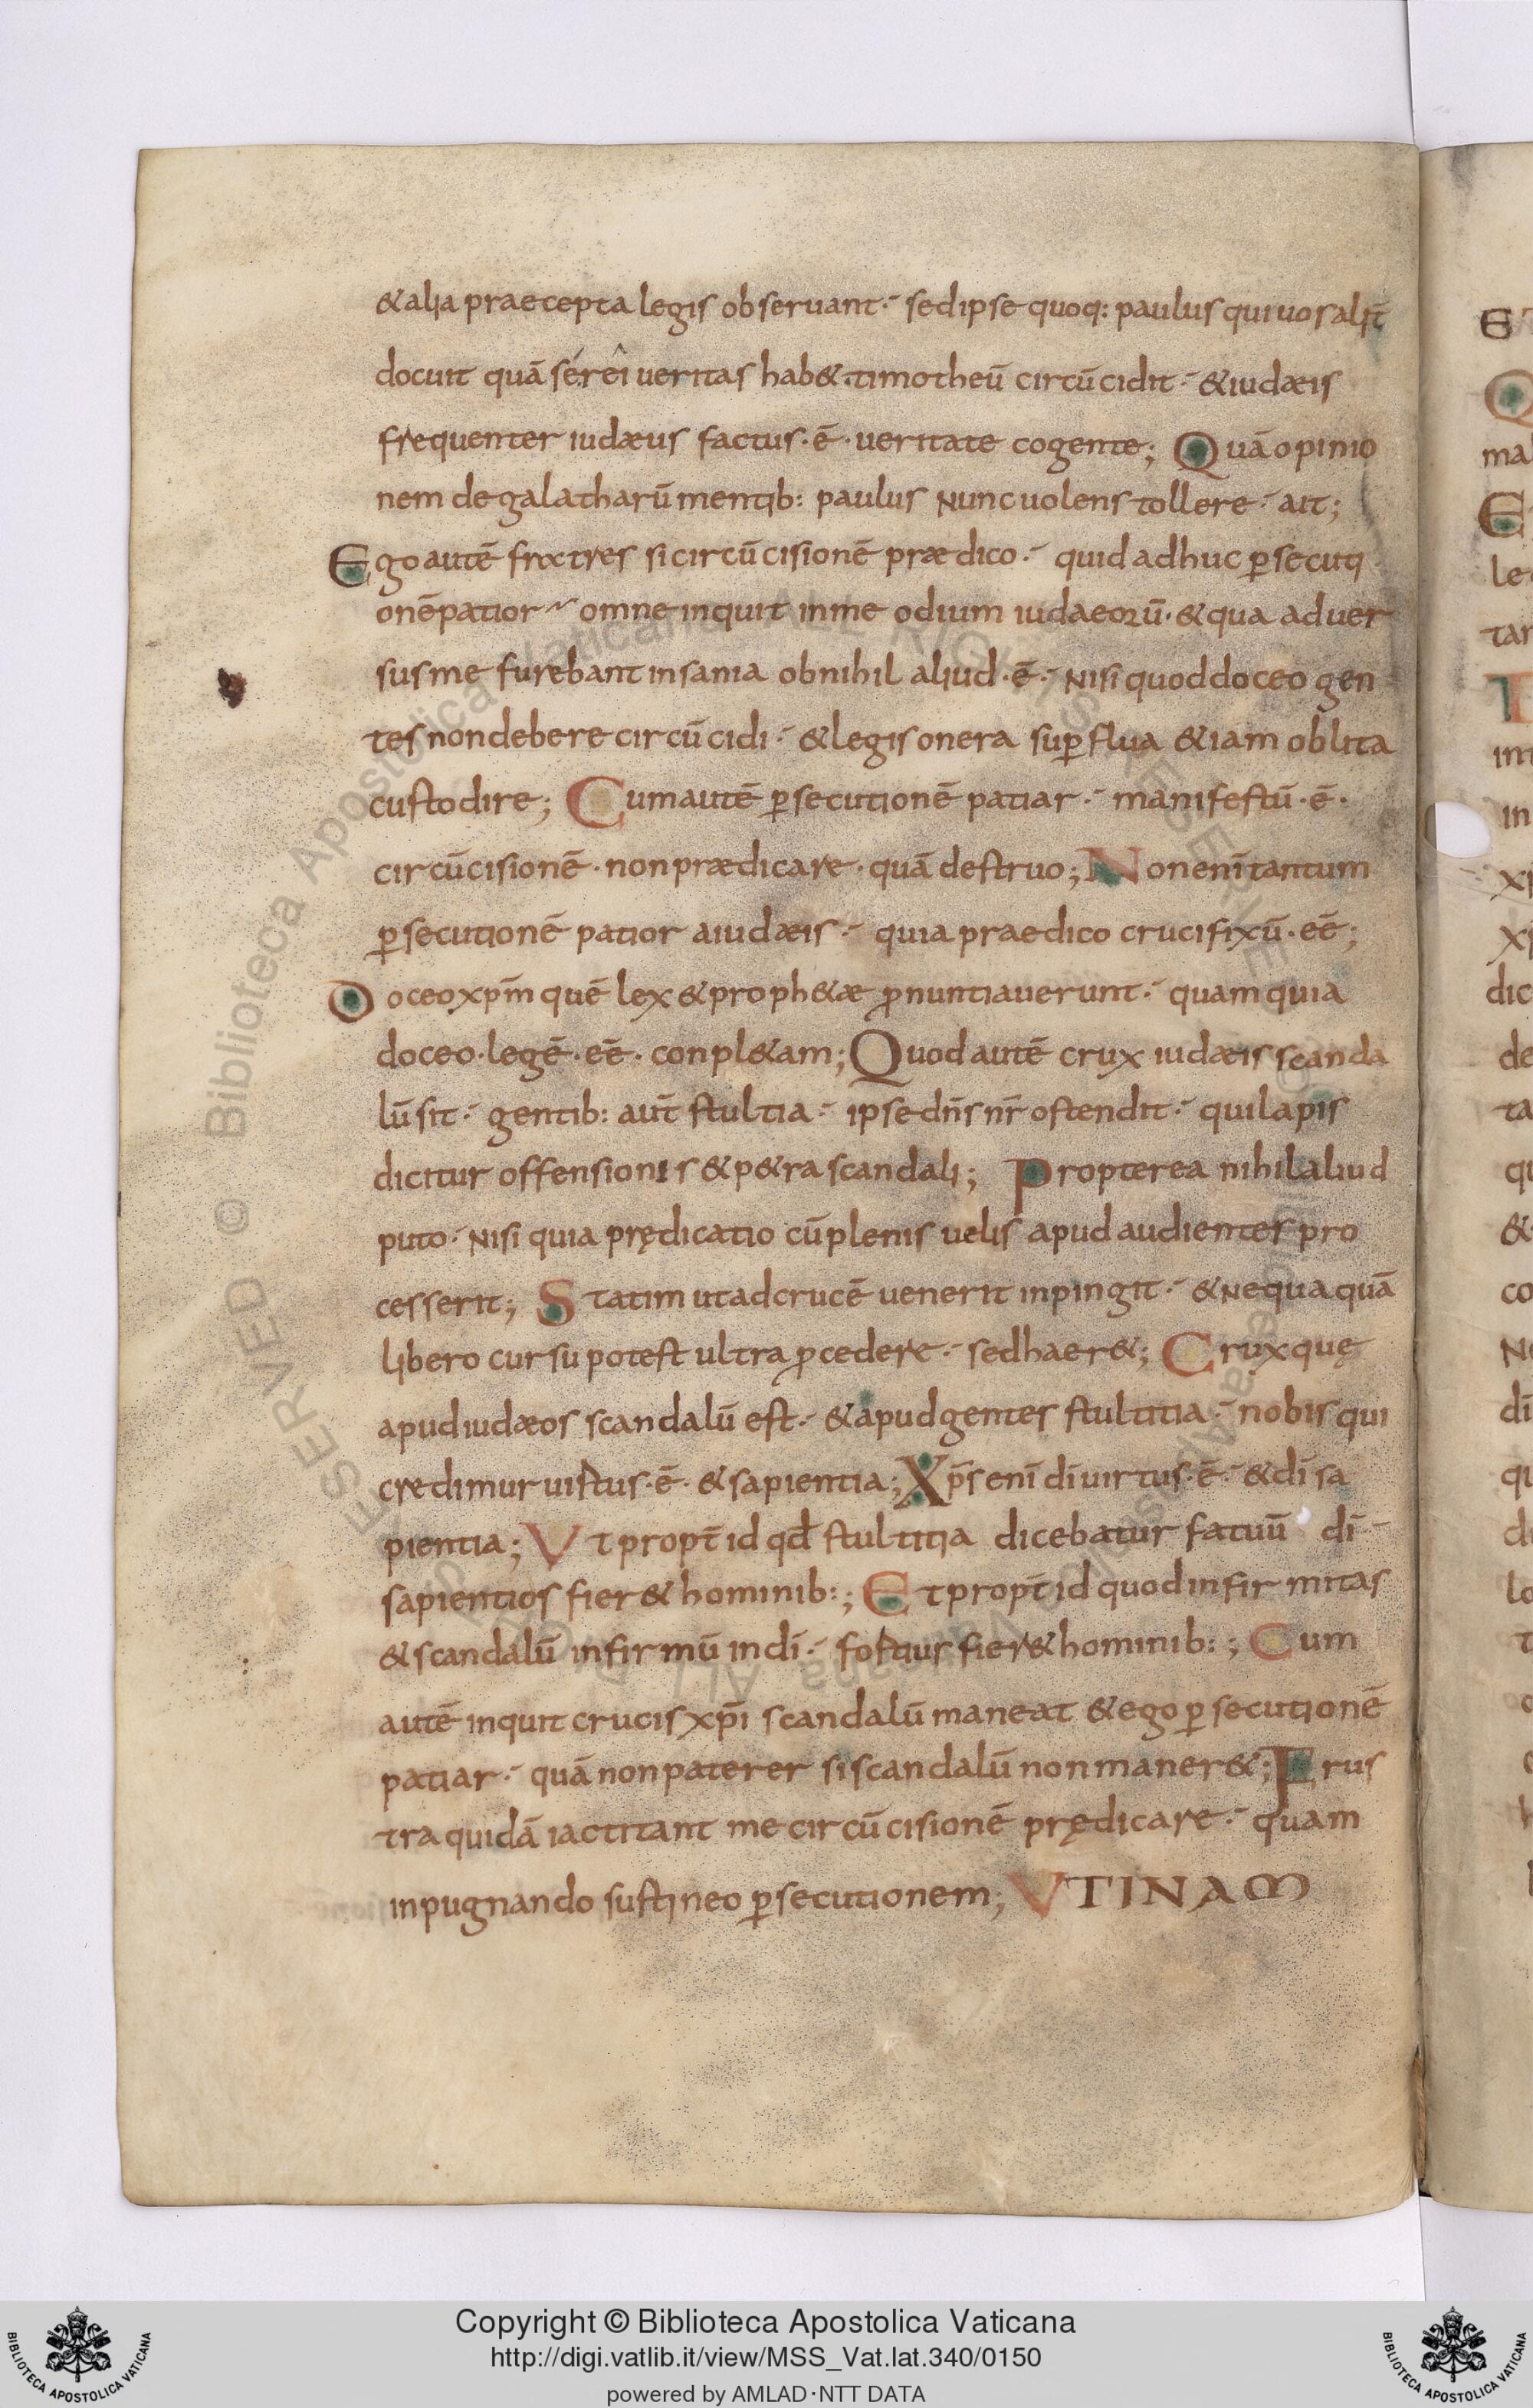 &alia praecepta legis obseruant· sed ipse quoq: paulus qui uos alit̄
docuit quā se rei ueritas hab&· timotheū circūcidit· &iudæis
frequenter iudæus factus·ē· ueritate cogente; Quā opinio
nem de galatharū mentib: paulus nunc uolens tollere· ait;
Ego autē fratres si circūcisionē prædico· quid adhuc ꝑsecuti
onē patior omne inquit in me odium iudaeoꝝū· &qua aduer
sus me furebant insania ob nihil aliud·ē· nisi quod doceo gen
tes non debere circūcidi· &legis onera suꝑflua &iam oblita
custodire; Cum autē ꝑsecutionē patiar· manifestū·ē·
circūcisionē· non prædicare· quā destruo; Non enī tantum
ꝑsecutionē patior a iudæis· quia praedico crucifixū·eē;
Doceo xp̄m quē lex &proph&æ ꝓnuntiauerunt· quam quia
doceo·legē·eē· conpl&am; Quod autē crux iudæis scanda
lū sit· gentib: aut̄ stultia· ipse dn̄s nr̄ ostendit· qui lapis
dicitur offensionis &p&ra scandali; Propterea nihil aliud
puto· nisi quia prędicatio cū plenis uelis apud audientes pro
cesserit; Statim ut ad crucē uenerit inpingit· &nequaquā
libero cursu potest ultra ꝓcedere· sed haer&; Crux quę
apud iudæos scandalū est· &apud gentes stultitia· nobis qui
credimus uirtus·ē· &sapientia; Xp̄s enī dī uirtus·ē· &dī sa
pientia; Vt propt̄ id qd̄ stultitia dicebatur fatuū dī
sapientios fier& hominib:; Et propt̄ id quod infirmitas
&scandalū infirmū in dī· fortius fier& hominib:; Cum
autē inquit crucis xp̄i scandalū maneat &ego ꝑsecutionē
patiar· quā non paterer si scandalū non maner&; Frus
tra quidā iactitant me circūcisionē prędicare· quam
inpugnando sustineo ꝑsecutionem; VTINAM
Copyright © Biblioteca Apostolica Vaticana
http://digi.vatlib.it/view/MSS_Vat.lat.340/0150
powered by AMLAD·NTT DATA